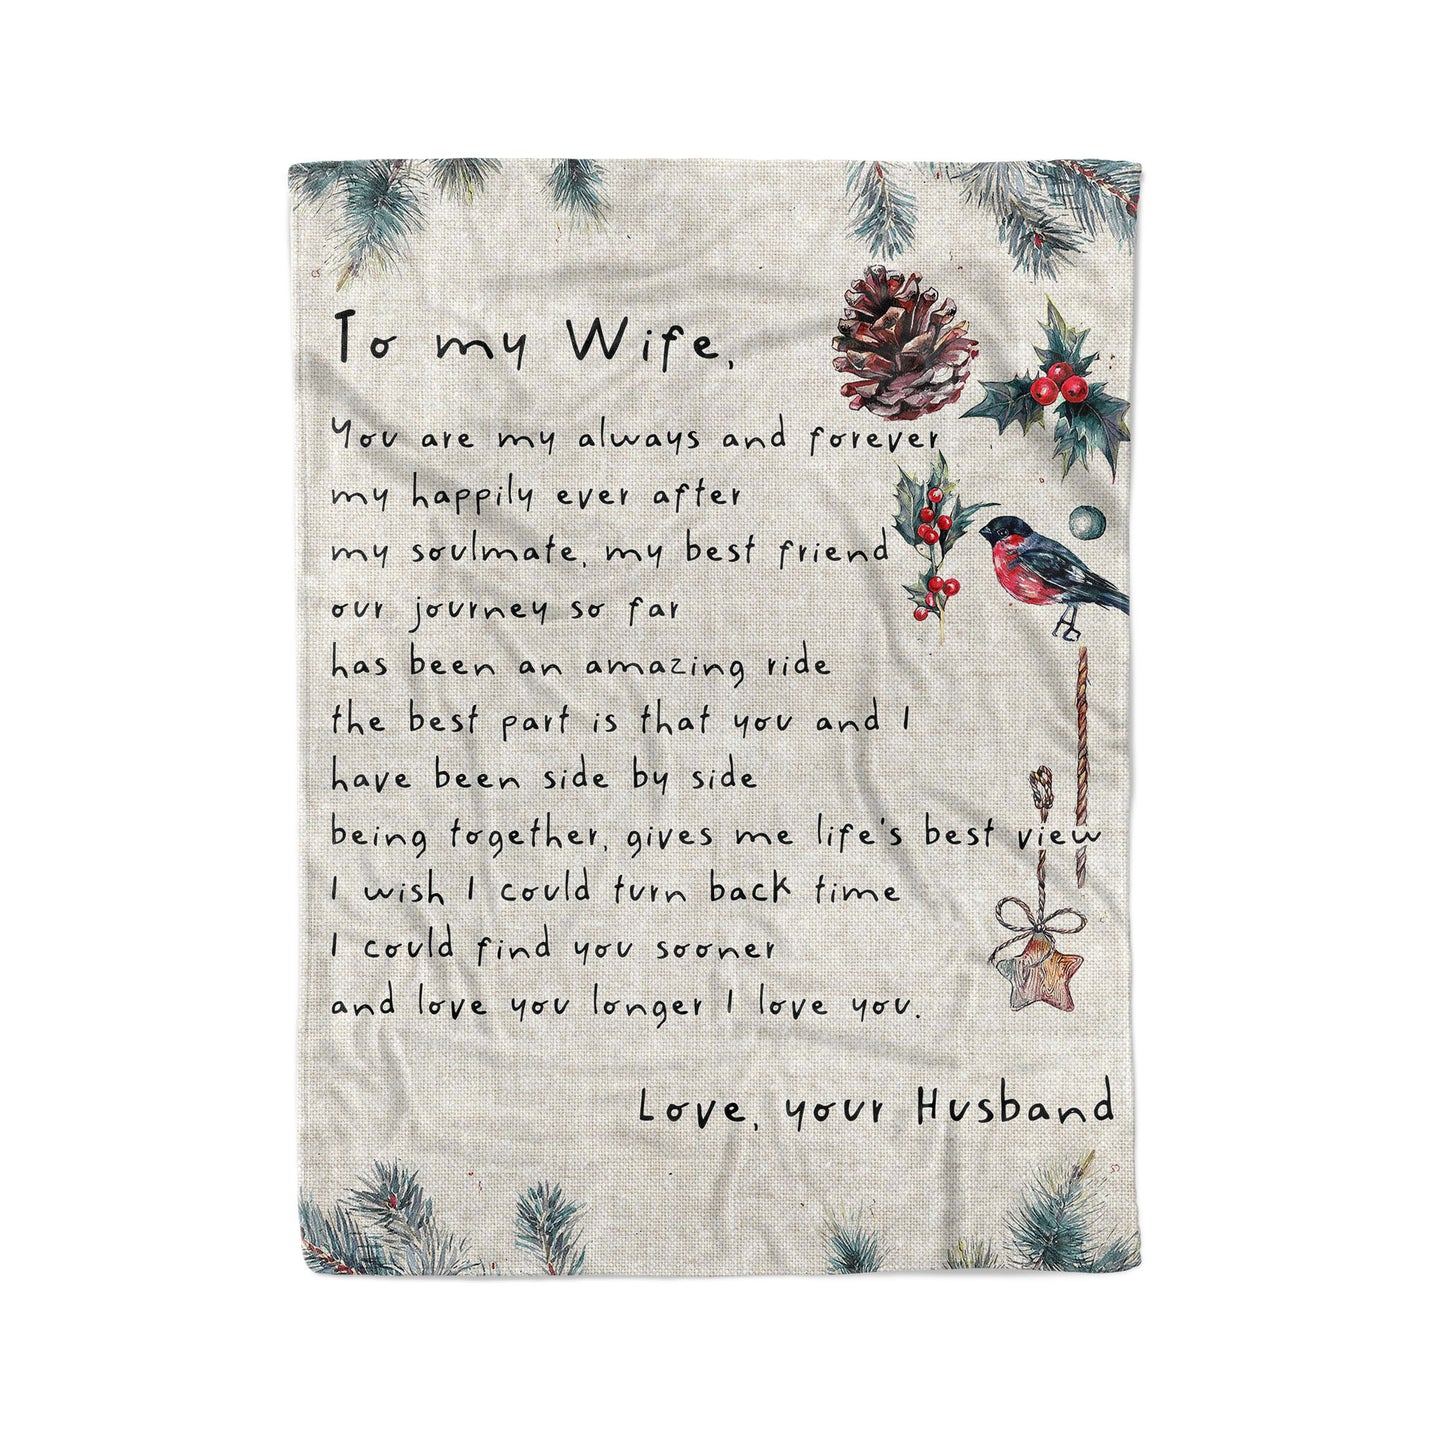 To my Wife,
You are my always and forever
my happily ever after
my soulmate, my best friend
our journey so far
has been an amazing ride
the best part is that you and I
have been side by side
being together, gives me life's best view
I wish I could turn back time
I could find you sooner
and love you longer I love you.
Love, your Husband